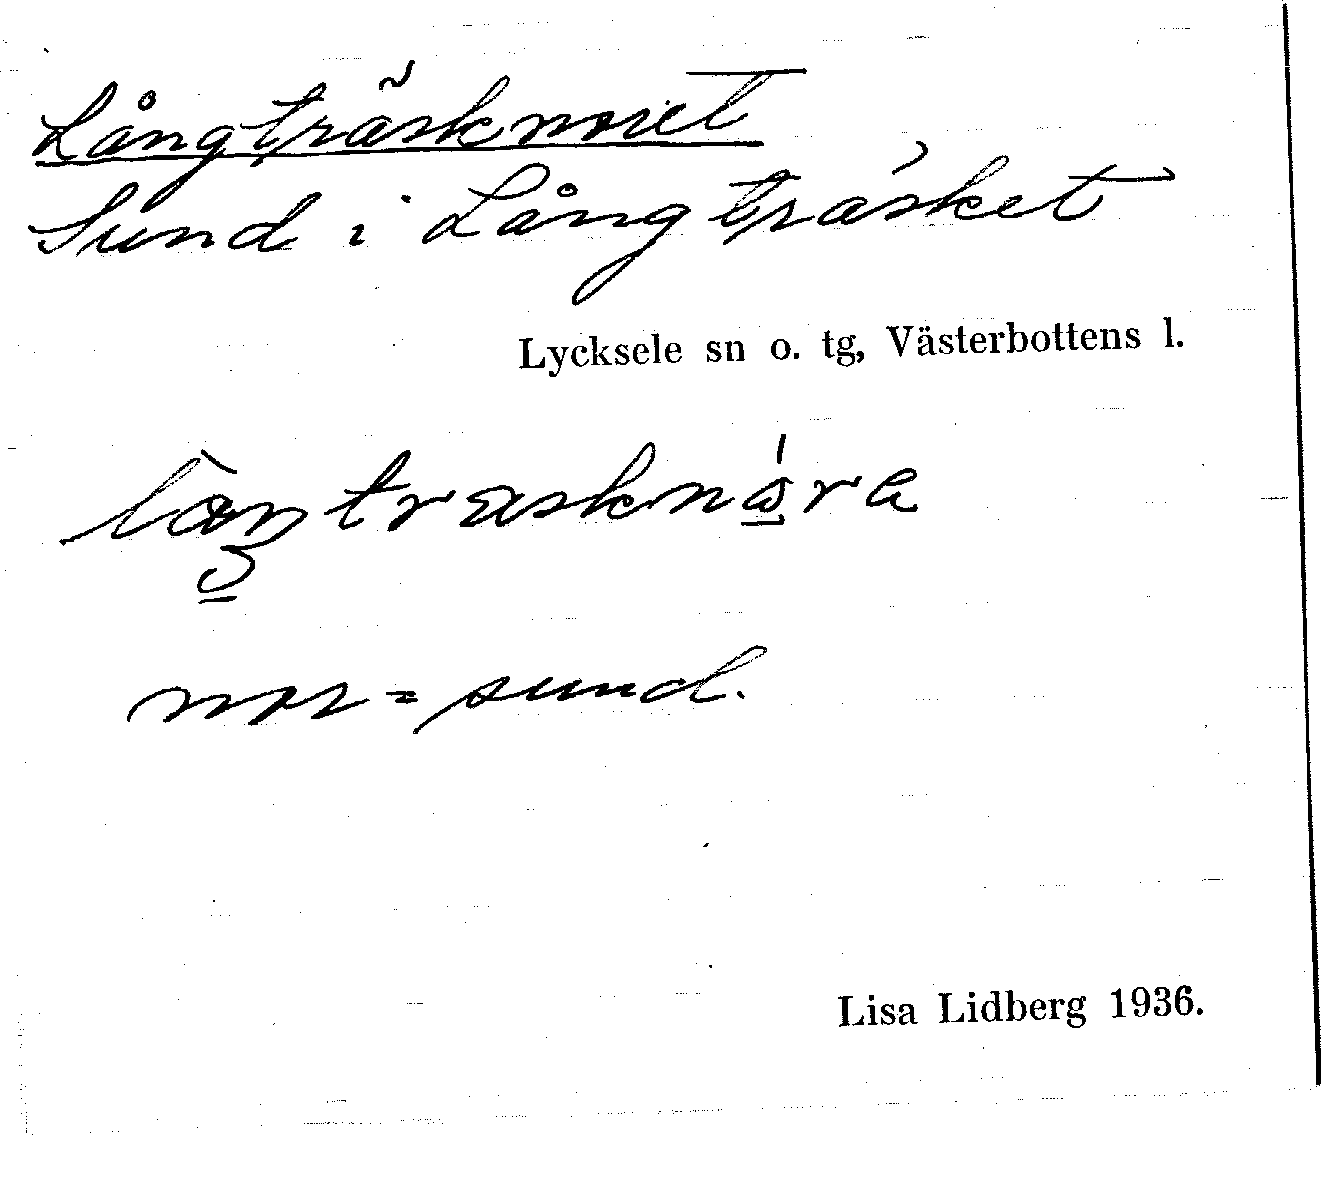 Långträsknoret
Sund i Långträsket
Lycksele sn o. tg, Västerbottens l.
nor = sund.
Lisa Lidberg 1936.